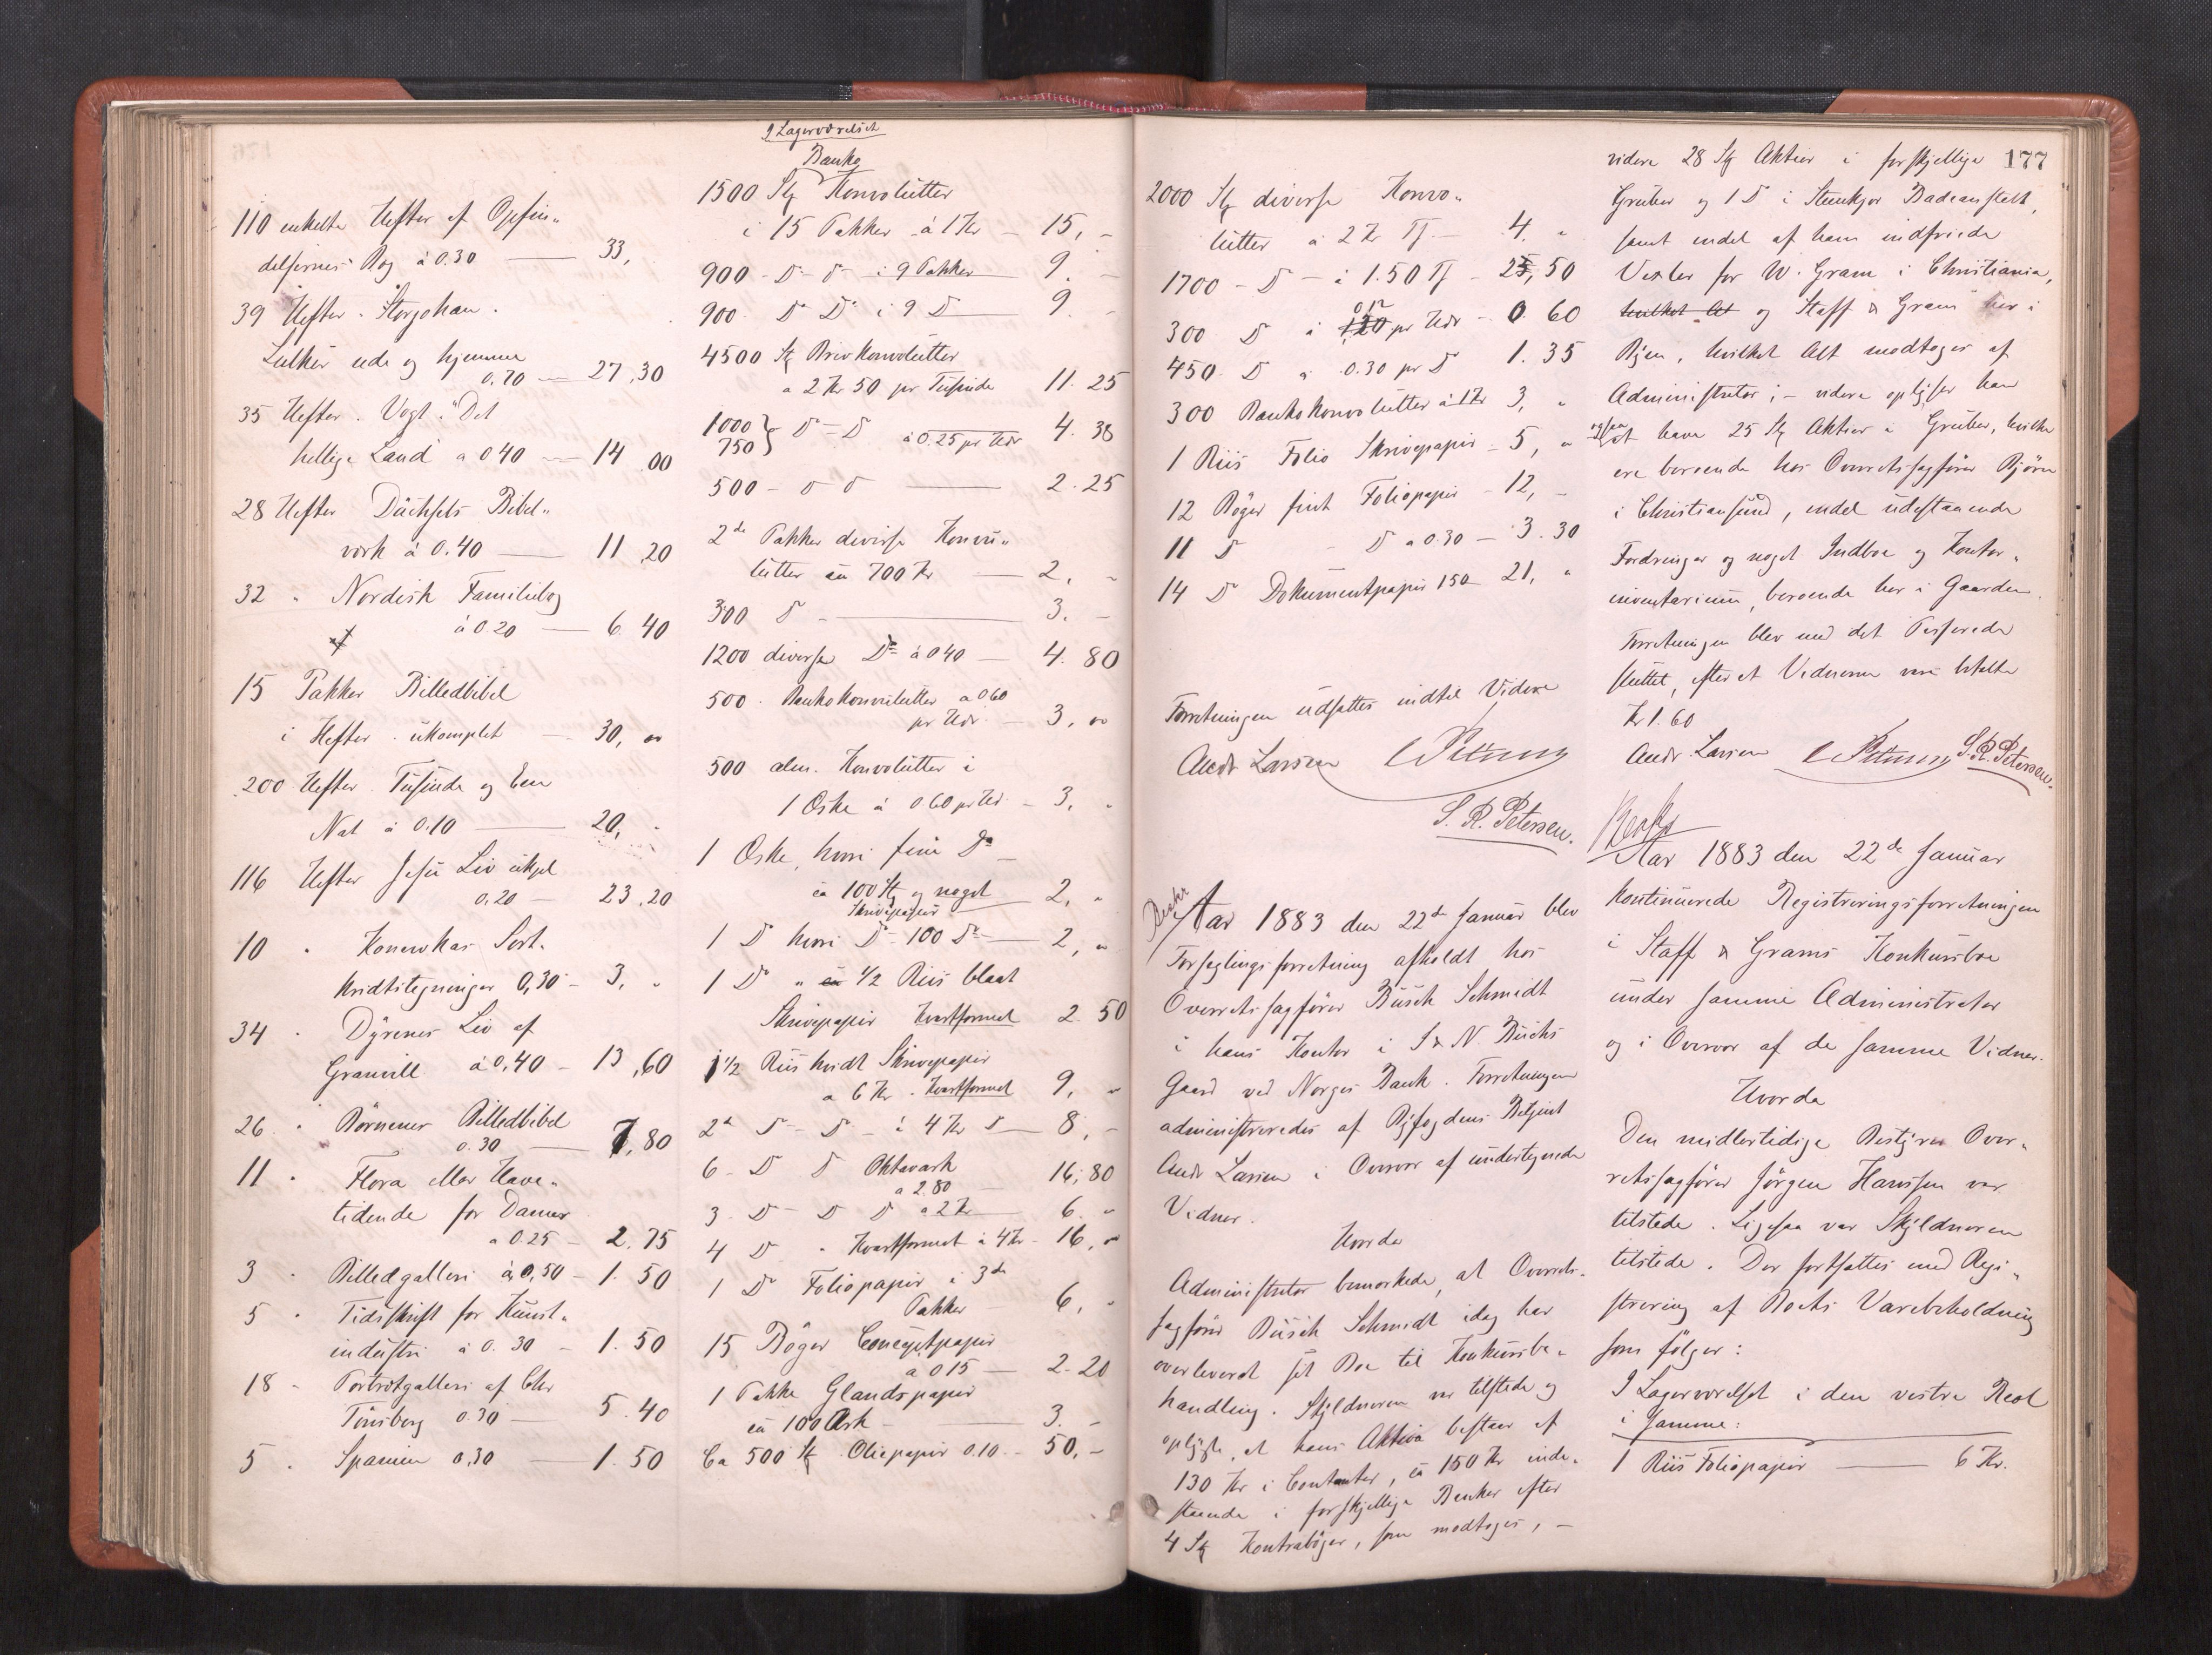 110 enkelte Hefter af Opfin„
delsernes Bog à 0.30 — 33,
39 Hefter. Storjohan.
ude og hjemme
0,70 — 27,30
35 Hefter. Vogt. "Det
hellige Land a 040 — 14 00
28 Hefter Dächsels Bibel„
værk à 0.40 — 11 20
32 „ Nordisk Familiebog
à 0.20 — 6. 40
15 Pakker Billedbibel
i Hefter. ukomplet — 30, „
200 Hefter Tusinde og Een
Nat à 0.10 — 20, „
116 Hefter Jesu Liv ukpl
0,20 — 23.20
10 „ Konewkas Sort„
kridtstegninger 0,30 – 3, „
34 „ Dyrenes Liv af
Granville à 0,40 – 13,60
26 „ Børnenes Billedbibel
0.30 — 7,80
11 „ Flora eller Have„
tidende for Damer
a 0.25 – 2.75
3 „ Billedgalleri à 0,50 – 1. 50
5 „ Tidsskrift for Kunst„
industri à 0. 30 – 1. 50
18 – Portrætgalleri af Chr
Tönsberg 0.30 — 5. 40
5 „ Spanien 0,30 — 1. 50
I Lagerværelset
Banko
1500 Stk Konvolutter
i 15 Pakker à 1 Kr – 15, –
900 – D – D – i 9 Pakker 9. –
900 Do Do i 9 D 9. –
4500 Stk Brevkonvolutter
a 2 Kr 50 pr Tusinde 11. 25
1000 } D – D
750 } à 0.25 pr Hdr 4. 38
500 – D D — 2. 25
2de Pakker diverse Konvo„
lutter ca 700 Kr — 2, „
300 D – — 3. –
1200 diverse Do à 040 — 4. 80
500 Bankokonvolutter a 060
pr Hdr – 3, „
500 alm. Konvolutter i
1 Æske à 060 pr Hd – 3, „
1 Æske, hvori fine Do
ca 100 Stk og noget
Skrivepapir 2, „
1 D hvori Do 100 Do — 2, „
1 Do „ ca 1/2 Riis blaat
Skrivepapir Kvartformat 2. 50
1 1/2 Riis hvidt Skrivepapir
a 6 Kr. Kvartformat 9. „
2 D – D – à 4 Kr D — 8, –
6 – D D Oktavark
a 2.80 16,80
3 – D – D D a 2 Kr 6. „
4 D „ Kvartformat à 4 Kr – 16, „
1 Do Foliopapir i 3de
Pakker 6, „
15 Bøger Conceptpapir
à 015 — 2. 20
1 Pakke Glandspapir
ca 100 Ark — 3. –
Ca 500 Stk Oliepapir 0.10 – 50, –
2000 Stk diverse Konvo„
lutter à 2 Kr Tf — 4. „
1700 – D – à 1.50 Tf – 25,50
012
300 D à 1,20 pr Hdr – 0. 60
450 D à 0.30 pr D 1. 35
300 Bankokonvolutter à 1 Kr 3, „
1 Riis Folio Skrivepapir – 5, „
12 Bøger fint Foliopapir – 12, –
11 D – D a 0.30 – 3. 30
14 Do Dokumentpapir 150 – 21, „
Forretningen udsattes indtil Videre
Andr Larsen C Petersen
S. R. Petersen.
Beskr
Aar 1883 den 22de Januar blev
Forseglingsforretning afholdt hos
Overretssagfører Busch Schmidt
i hans Kontor i I & N. Buchs
Gaard ved Norges Bank. Forretningen
administreredes af Byfogdens Betjent
Andr Larsen i Overvær af undertegnede
Vidner.
Hvorda
Administrator bemærkede, at Overrets„
sagfører Busch Schmidt idag har
overleveret sit Bo til Konkursbe„
handling. Skyldneren var tilstede og
oplyste, at hans Aktiva bestaar af
130 Kr i Contanter, ca 150 Kr inde„
staaende i forskjellige Banker efter
4 Stk Kontrabøger, som modtoges, –
177
videre 28 Stk Aktier i forskjellige
Gruber og 1 D i Stenkjær Badeanstalt,
samt endel af ham indfriede
Vexler for W. Gram i Christiania,
hvilket Alt og Staff & Gram her i
Byen, hvilket Alt modtoges af
Administrator; – videre oplyser han
ogsaa at have 25 Stk Aktier i Gruber, hvilke
ere beroende hos Overretssagfører Bjørn
i Christiansund, endel udestaaende
Fordringer og noget Indbo og Kontor„
inventarium, beroende her i Gaarden.
Forretningen blev med det Passerede
sluttet, efter at Vidnerne vare betalte
Kr 1.60
Andr. Larsen C Petersen S. R. Petersen.
Beskr
Aar 1883 den 22de Januar
kontinuerede Registreringsforretningen
i Staff & Grams Konkursbo
under samme Administrator
og i Overvær af de samme Vidner.
Hvorda
Den midlertidige Bestyrer Over„
retssagfører Jørgen Hanssen var
tilstede. Ligesaa var Skyldneren
tilstede. Der fortsattes med Regi„
strering af Boets Varebeholdning
som følger:
I Lagerværelset i den vestre Reol
i samme:
1 Riis Foliopapir — 6 Kr.